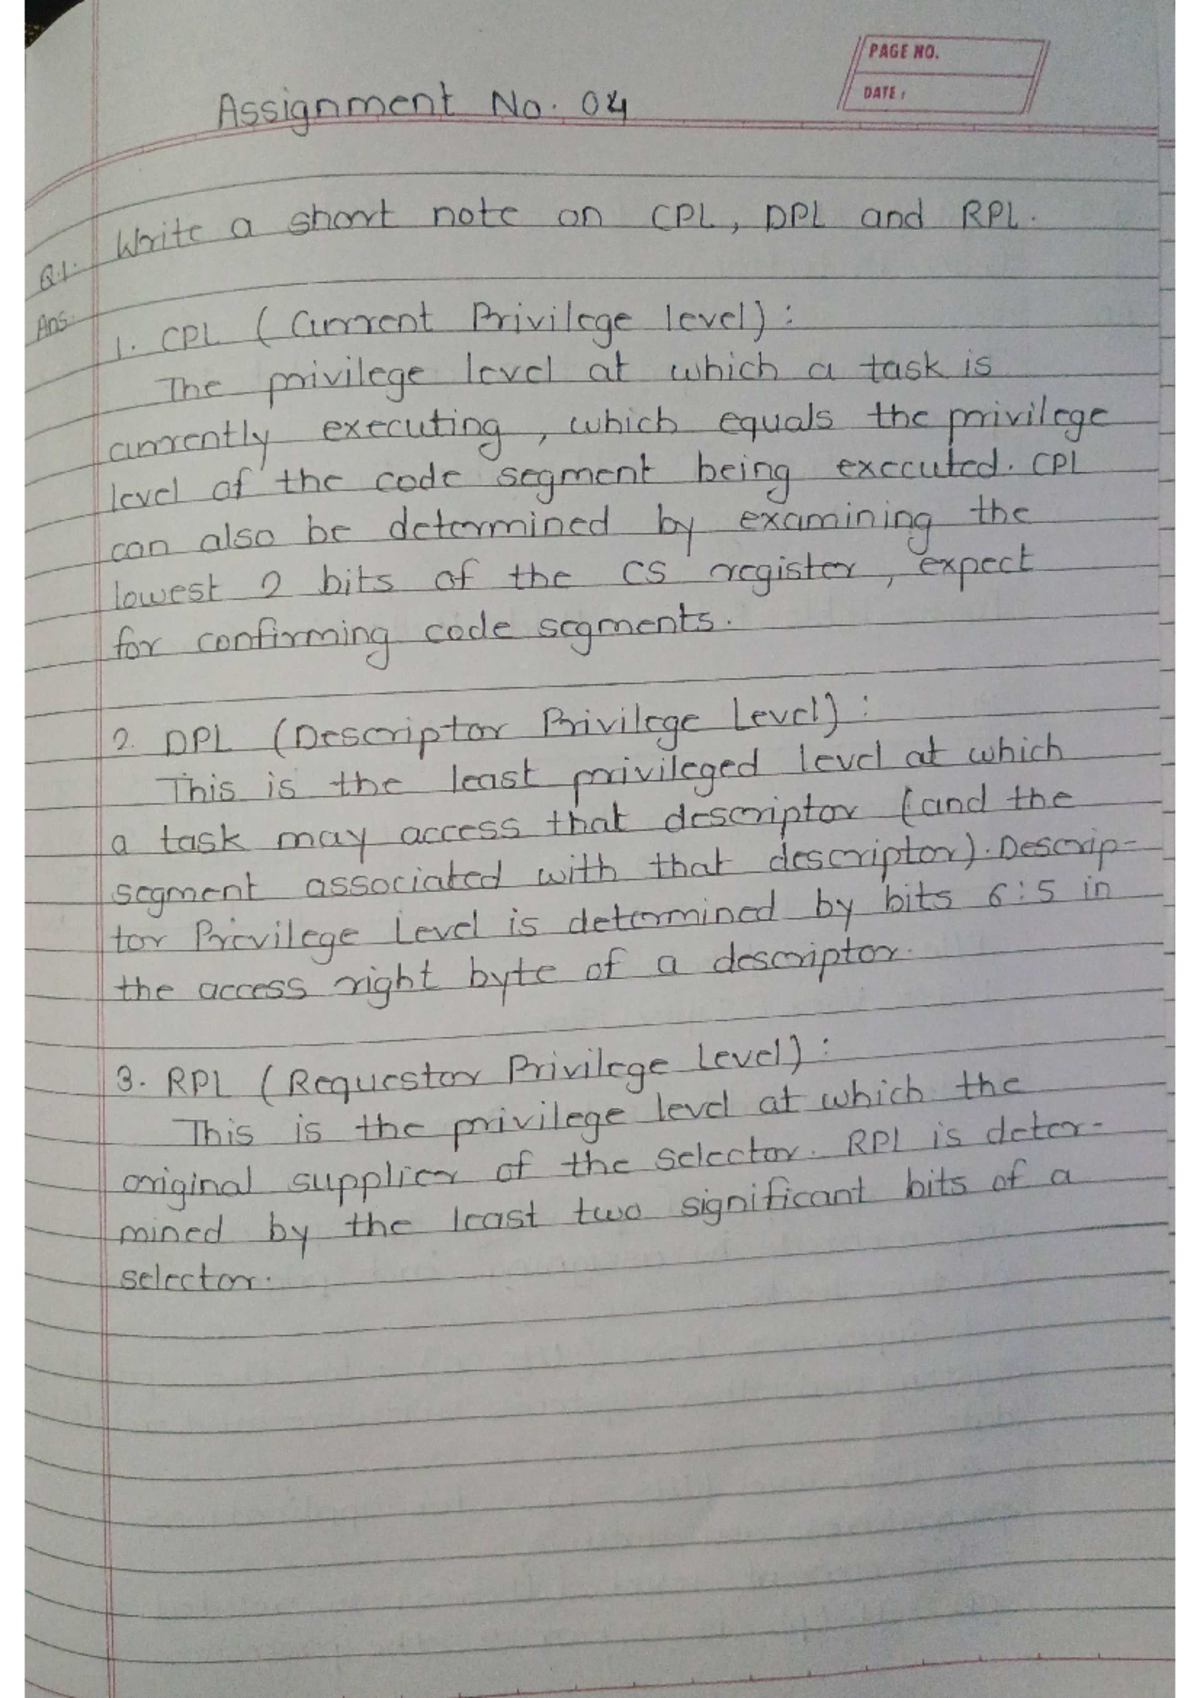 PAGE NO.
DATE:
Assignment No. 04
Q.1. Write a short note on CPL, DPL and RPL.
Ans:
1. CPL (Current Privilege level):
The privilege level at which a task is
currently executing, which equals the privilege
level of the code segment being executed. CPL
can also be determined by examining the
lowest 2 bits of the CS register, expect
for confirming code segments.
2. DPL (Descriptor Privilege Level):
This is the least privileged level at which
a task may access that descriptor (and the
segment associated with that descriptor). Descrip-
tor Privilege Level is determined by bits 6:5 in
the access right byte of a descriptor.
3. RPL (Requestor Privilege Level):
This is the privilege level at which the
original supplier of the selector. RPL is deter-
mined by the least two significant bits of a
selector.